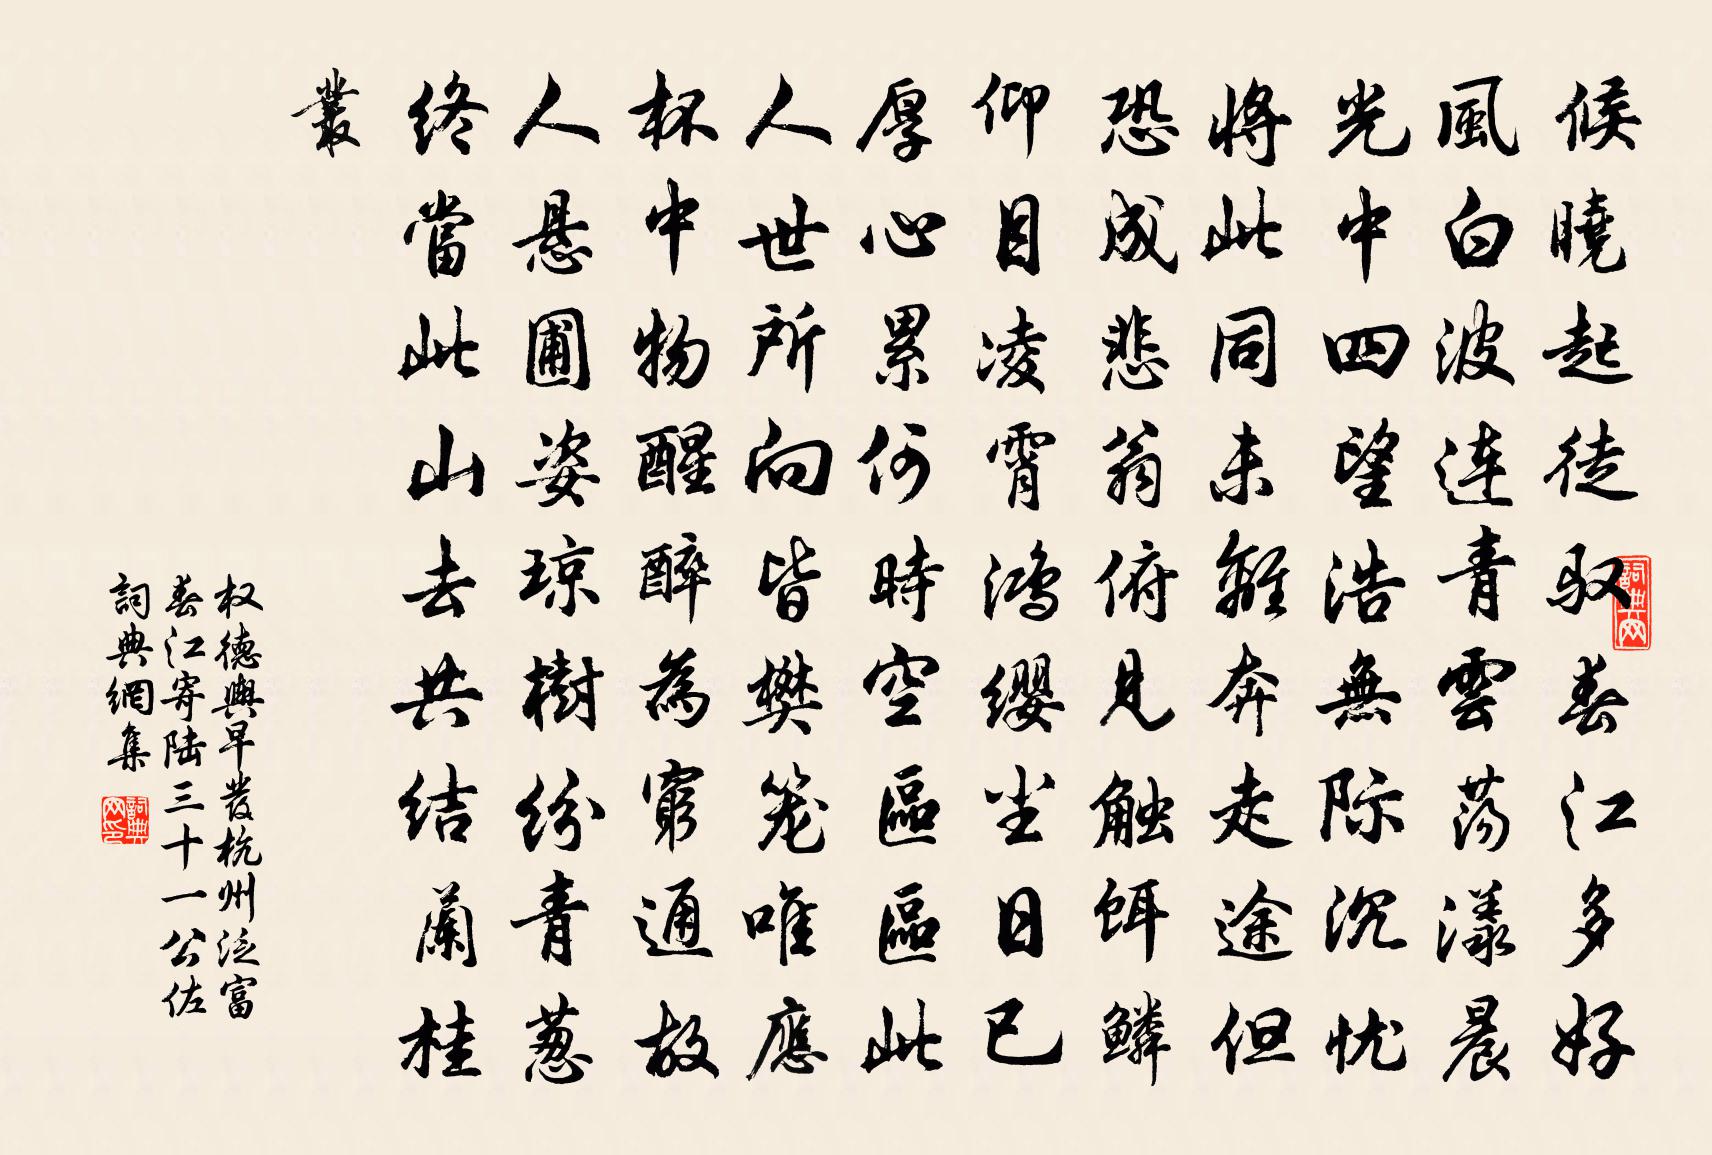 候曉起徒馭春江多好
風白波連青雲蕩漾晨
光中四望浩無際沉忧
將此同未離奔走途但
恐成悲翁俯見觸餌鱗
仰目凌霄鴻纓尘日已
厚心累何時空區區此
人世所向皆樊笼唯應
杯中物醒醉為窮通故
人悬圃姿琼樹纷青葱
终當此山去共结蘭桂
叢
权德輿早發杭州泛富
春江寄陆三十一公佐
詞典網集
詞典网
詞典网印